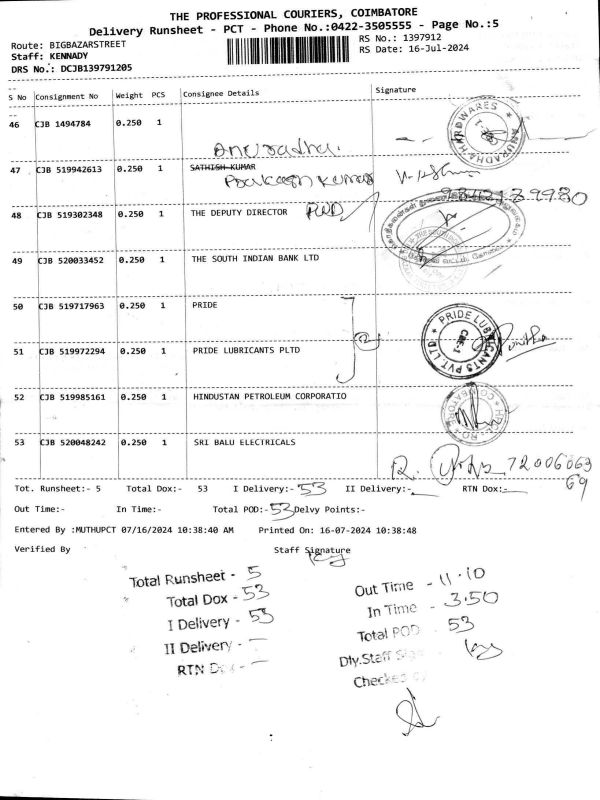 THE PROFESSIONAL COURIERS, COIMBATORE
Delivery Runsheet - PCT - Phone No.:0422-3505555 - Page No.:5
Route: BIGBAZARSTREET
RS No.: 1397912
Staff: KENNADY
RS Date: 16-Jul-2024
DRS No.: DCJB139791205
S No Consignment No Weight PCS Consignee Details Signature
46 CJB 1494784 0.250 1
Anuradha.
ANURADHA HARDWARES
47 CJB 519942613 0.250 1 SATHISH KUMAR
Prakash Kumar
48 CJB 519302348 0.250 1 THE DEPUTY DIRECTOR PWD
49 CJB 520033452 0.250 1 THE SOUTH INDIAN BANK LTD
50 CJB 519717963 0.250 1 PRIDE
2
PRIDE LUBRICANTS PVT. LTD
CBE-1
Punitha
51 CJB 519972294 0.250 1 PRIDE LUBRICANTS PLTD
52 CJB 519985161 0.250 1 HINDUSTAN PETROLEUM CORPORATIO
53 CJB 520048242 0.250 1 SRI BALU ELECTRICALS
7200606369
Tot. Runsheet:- 5 Total Dox:- 53 I Delivery:- 53 II Delivery:- RTN Dox:-
Out Time:- In Time:- Total POD:- 53 Delvy Points:-
Entered By :MUTHUPCT 07/16/2024 10:38:40 AM Printed On: 16-07-2024 10:38:48
Verified By Staff Signature
Total Runsheet - 5
Total Dox - 53
I Delivery - 53
II Delivery -
RTN Dox -
Out Time - 11.10
In Time - 3.50
Total POD 53
Dly.Staff Sign
Checked by